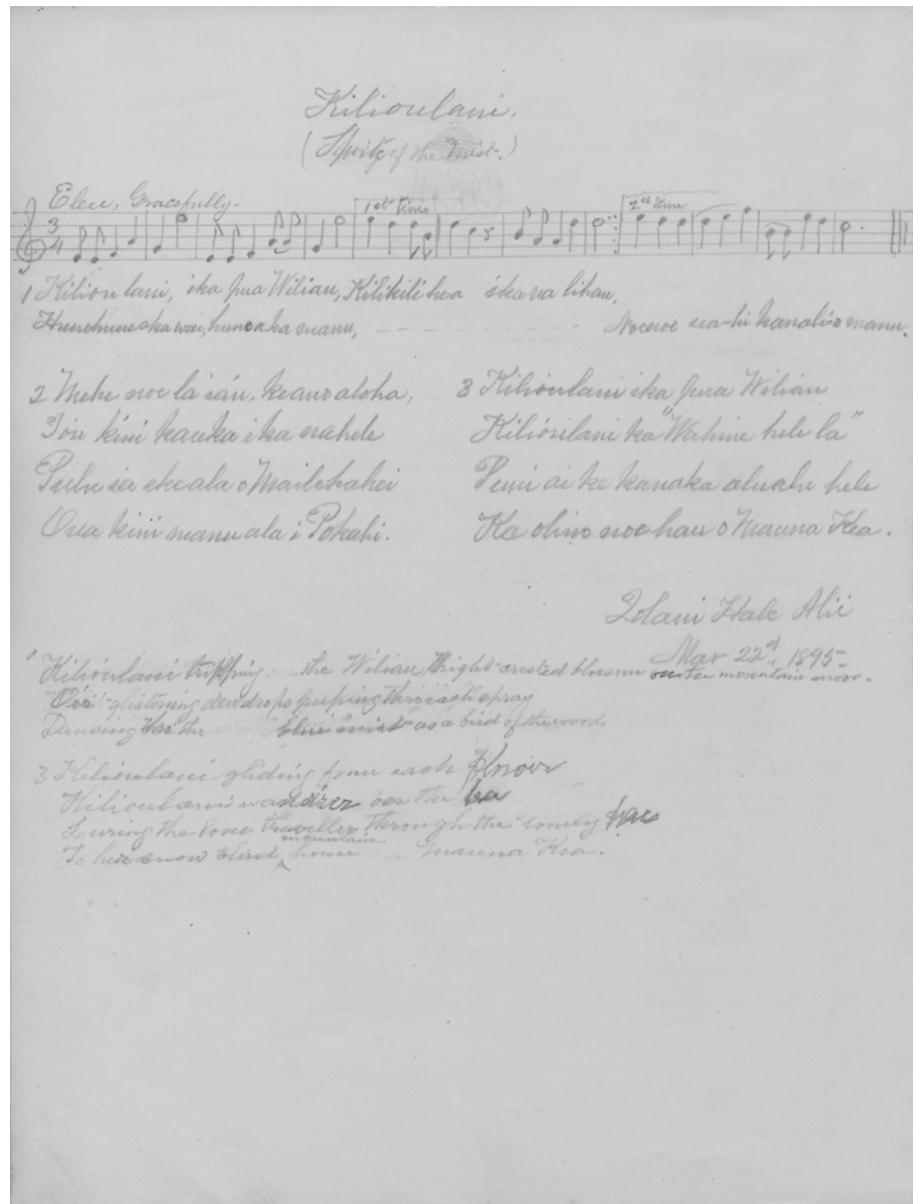 Kilioulani.
(Spirit of the Mist.)
Eleu, Gracefully.
1st time
2nd time
3
4
1 Kilioulani, ika pua Wiliau, Kilikilihea ika ua lihau,
Hunehune aka wai, hune aka manu, Noenoe kanali o manu.
2 Mehe noe la iáu, keano aloha,
Ióu kini kauka ika nahele
Puhe ia eke ala o Mailehahei
Oua kini manu ala i Pokahi.
3 Kilioulani ika pua Wiliau
Kilioulani ka "Wahine hele la"
Puni ai ke kanaka alualu hele
Ka olino noe hau o Mauna Kea.
Iolani Hale Alii
Mar 22nd, 1895.
1 Kilioulani tripping the Wiliau, bright-crested blossom on the mountain moor.
glistening dewdrops peeping thro' each spray
Dancing thro the mist as a bird of the wood
3 Kilioulani gliding from each flower
Kilioulani wand'rer o'er the lea
Luring the lone traveller through the lonely
To her snow clad mountain home Mauna Kea.